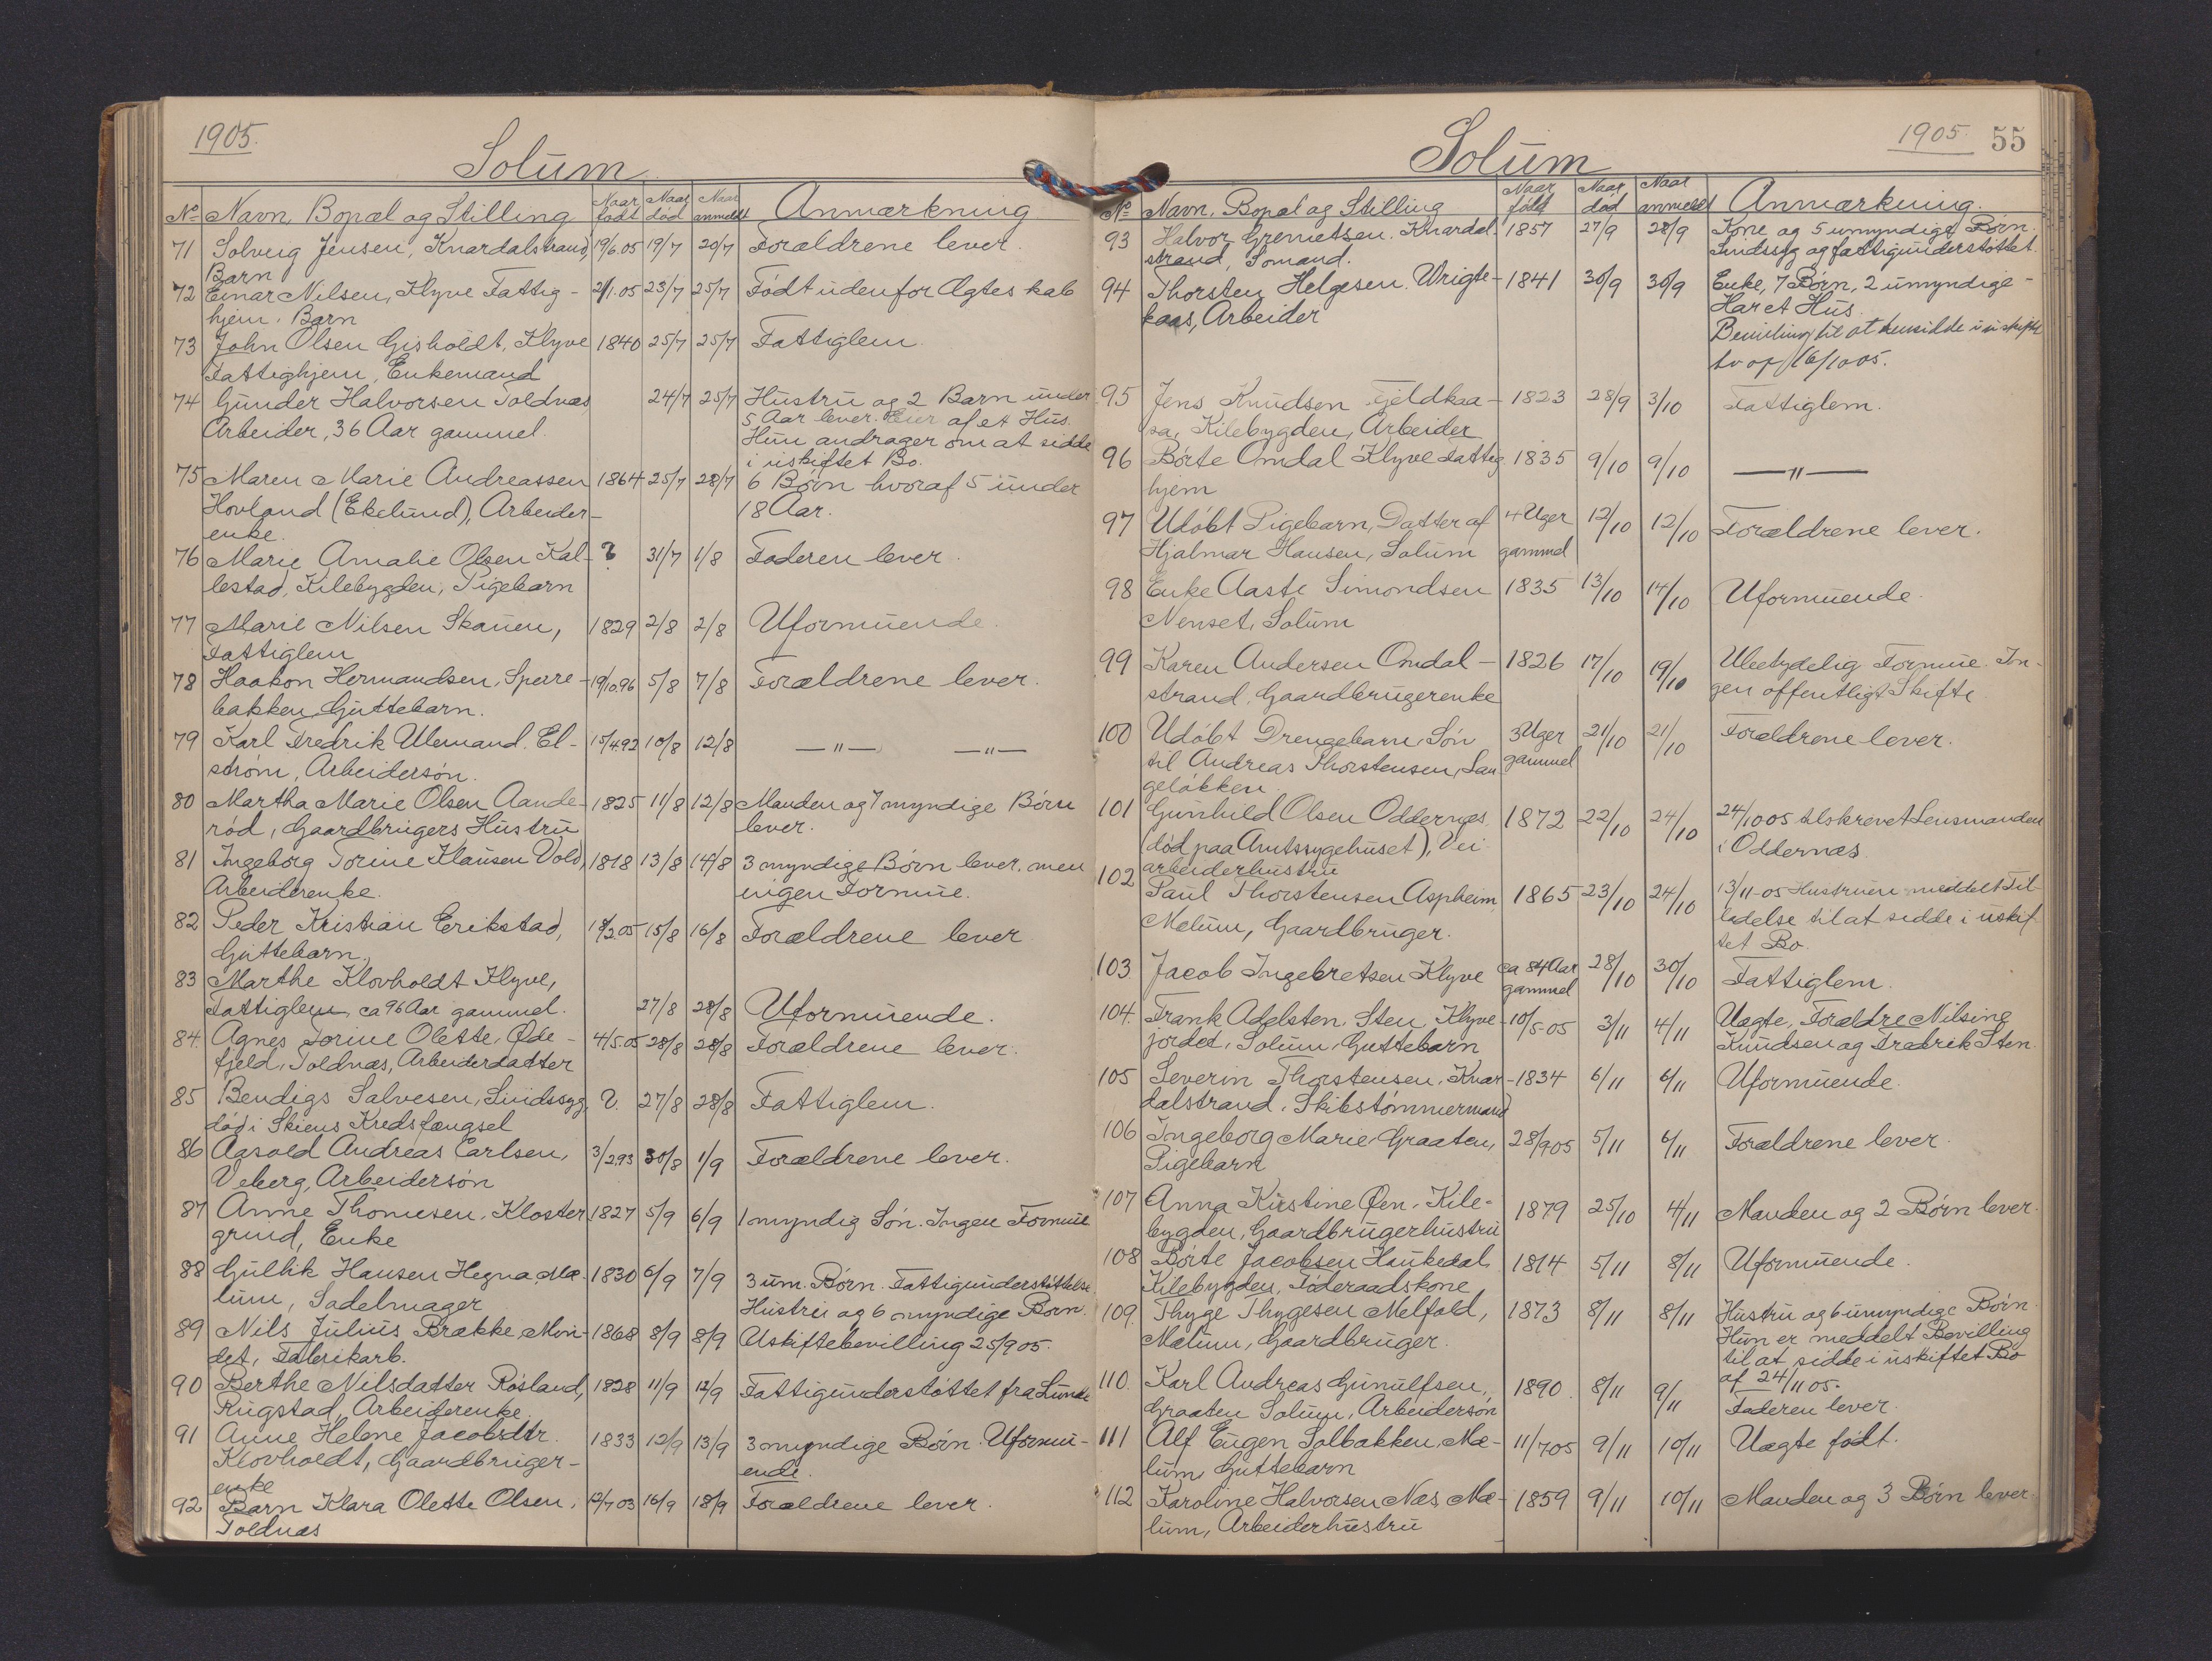 1905.
Solum
No Navn, Bopæl og Stilling Naar født Naar død Naar anmeldt Anmærkning
71 Solveig Jensen, Knardalstrand, 19/6.05 19/7 20/7 Forældrene lever.
Barn
72 Einar Nilsen, Klyve Fattig- 2/1.05 23/7 25/7 Født udenfor Ægteskab
hjem. Barn
73 John Olsen Gisholdt, Klyve 1840 25/7 25/7 Fattiglem
Fattighjem, Enkemand
74 Gunder Halvorsen Toldnæs 24/7 25/7 Hustru og 2 Barn under
Arbeider, 36 Aar gammel. 5 Aar lever. Eier af et Hus.
Hun andrager om at sidde
i uskiftet Bo.
75 Maren Marie Andreassen 1864 25/7 28/7 6 Børn hvoraf 5 under
Hovland (Ekelund), Arbeider- 18 Aar.
enke.
76 Marie Amalie Olsen Kal- ? 31/7 1/8 Faderen lever.
lestad, Kilebygden, Pigebarn
77 Marie Nilsen Skauen, 1829 2/8 2/8 Uformuende.
Fattiglem
78 Haakon Hermandsen, Sperre- 19/10.96 5/8 7/8 Forældrene lever.
bakken, Guttebarn.
79 Karl Fredrik Ulemand. El- 15/4.92 10/8 12/8 —"— —"—
strøm, Arbeidersøn.
80 Martha Marie Olsen Aande- 1825 11/8 12/8 Manden og 7 myndige Børn
rød, Gaardbrugers Hustru lever.
81 Ingeborg Torine Klausen Vold, 1818 13/8 14/8 3 myndige Børn lever, men
Arbeiderenke. ingen Formue.
82 Peder Kristian Erikstad, 18/2.05 15/8 16/8 Forældrene lever
Guttebarn.
83 Marthe Klovholdt Klyve,
Fattiglem, ca 96 Aar gammel. 27/8 28/8 Uformuende.
84. Agnes Torine Olette, Øde- 4/5.05 28/8 28/8 Forældrene lever.
fjeld, Toldnæs, Arbeiderdatter
85 Bendigs Salvesen, Sindssyg, ?. 27/8 28/8 Fattiglem.
død i Skiens Kredsfængsel
86 Aasold Andreas Carlsen, 3/2.93 30/8 1/9 Forældrene lever.
Veberg, Arbeidersøn
87 Anne Thomesen, Kloster 1827 5/9 6/9 1 myndig Søn. Ingen Formue
grind, Enke
88 Gullik Hansen Hegna Mæ- 1830 6/9 7/9 3 um. Børn. Fattigunderstøttelse.
lum, Sadelmager Hustru og 6 myndige Børn.
89 Nils Julius Brække, Mon- 1868 8/9 8/9 Uskiftebevilling 25/9 05.
det, Fabrikarb.
90 Berthe Nilsdatter Røsland, 1828 11/9 12/9 Fattigunderstøttet fra Lunde
Rugstad, Arbeiderenke.
91 Anne Helene Jacobsdtr. 1833 12/9 13/9 3 myndige Børn. Uformu-
Klovholdt, Gaardbruger- ende.
enke
92 Barn Klara Olette Olsen, 12/7 03 16/9 18/9 Forældrene lever.
Toldnæs
1905. 55
Solum
No Navn, Bopæl og Stilling Naar født Naar død Naar anmeldt Anmærkning.
93 Halvor Gremetsen. Knardal- 1857 27/9 28/9 Kone og 5 umyndige Børn.
strand, Sømand. Sindssyg og fattigunderstøttet.
94 Thorsten Helgesen. Vrigte- 1841 30/9 30/9 Enke, 7 Børn, 2 umyndige-
kaas, Arbeider Har et Hus.
Bevilling til at hensidde i uskiftet
Bo af 16/10 05.
95 Jens Knudsen Fjeldkaa- 1823 28/9 3/10 Fattiglem.
sa, Kilebygden, Arbeider
96 Børte Omdal Klyve Fattig 1835 9/10 9/10 —"—
hjem
97 Udøbt Pigebarn, Datter af 4 Uger 12/10 12/10 Forældrene lever.
Hjalmar Hansen, Solum gammel
98 Enke Aaste Simondsen 1835 13/10 14/10 Uformuende.
Nenset, Solum
99 Karen Andersen Omdal- 1826 17/10 19/10 Ubetydelig Formue. In-
strand, Gaardbrugerenke gen offentligt Skifte
100 Udøbt Drengebarn, Søn 3 Uger 21/10 21/10 Forældrene lever.
til Andreas Thorstensen, Lan gammel
geløkken.
101 Gunhild Olsen Oddernæs 1872 22/10 24/10 24/10 05 tilskrevet Lensmanden
(død paa Amtssygehuset), Vei i Oddernæs
arbeiderhustru
102 Paul Thorstensen Aspheim, 1865 23/10 24/10 13/11-05 Hustruen meddelt Til-
Melum, Gaardbruger. ladelse til at sidde i uskif-
tet Bo.
103. Jacob Ingebretsen Klyve ca 84 Aar 28/10 30/10 Fattiglem.
gammel
104. Frank Adelsten, Sten, Klyve- 10/5-05 3/11 4/11 Uægte, Forældre Nilsine
jordet, Solum, Guttebarn Knudsen og Fredrik Sten
105 Severin Thorstensen. Knar- 1834 6/11 6/11 Uformuende.
dalstrand, Skibstømmermand
106 Ingeborg Marie Graaten, 28/9 05 5/11 6/11 Forældrene lever.
Pigebarn
107 Anna Kirstine Øen. Kile- 1879 25/10 4/11 Manden og 2 Børn lever.
bygden, Gaardbrugerhustru
108 Børte Jacobsen Haukedal 1814 5/11 8/11 Uformuende.
Kilebygden, Føderaadskone
109. Thyge Thygesen Melfald, 1873 8/11 8/11 Hustru og 6 umyndige Børn
Mælum, Gaardbruger. Hun er meddelt Bevilling
til at sidde i uskiftet Bo
af 24/11 05.
110. Karl Andreas Gunulfsen, 1890. 8/11 9/11 Faderen lever.
Graaten Solum, Arbeidersøn
111 Alf Eugen Solbakken, Mæ- 11/7 05 9/11 10/11 Uægte født.
lum, Guttebarn
112 Karoline Halvorsen Næs, Mæ- 1859 9/11 10/11 Manden og 3 Børn lever.
lum, Arbeiderhustru